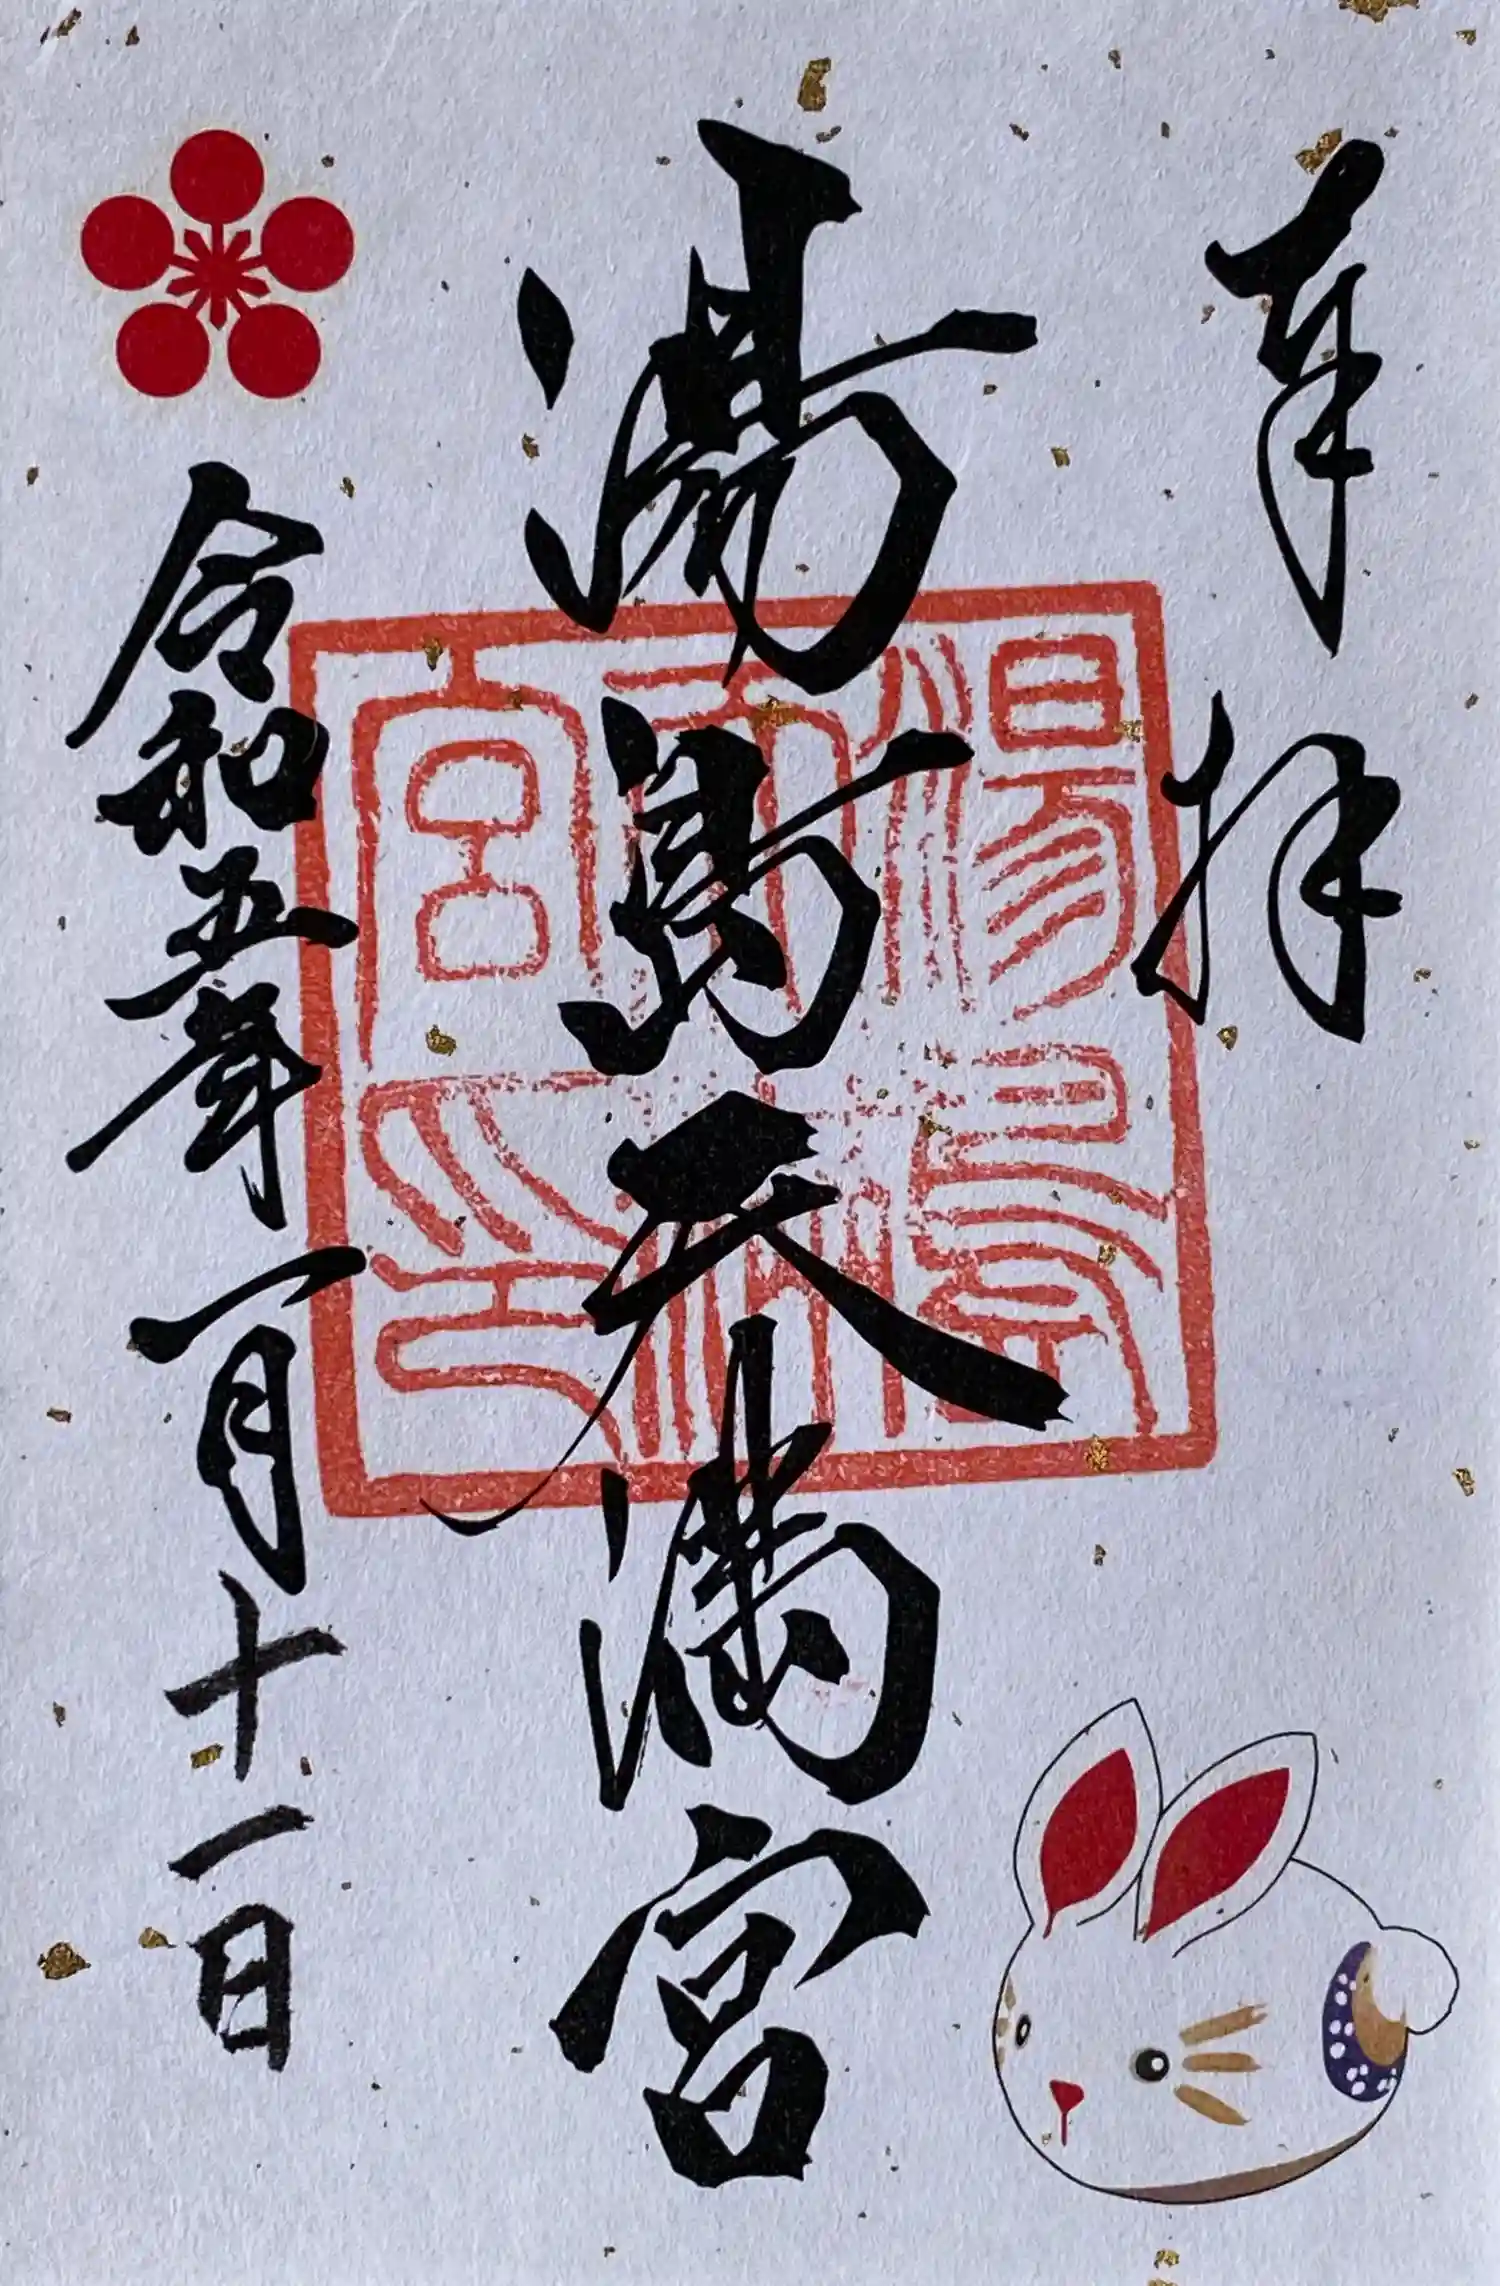 奉拝
湯島天満宮
令和五年一月十一日
湯島天神宮印